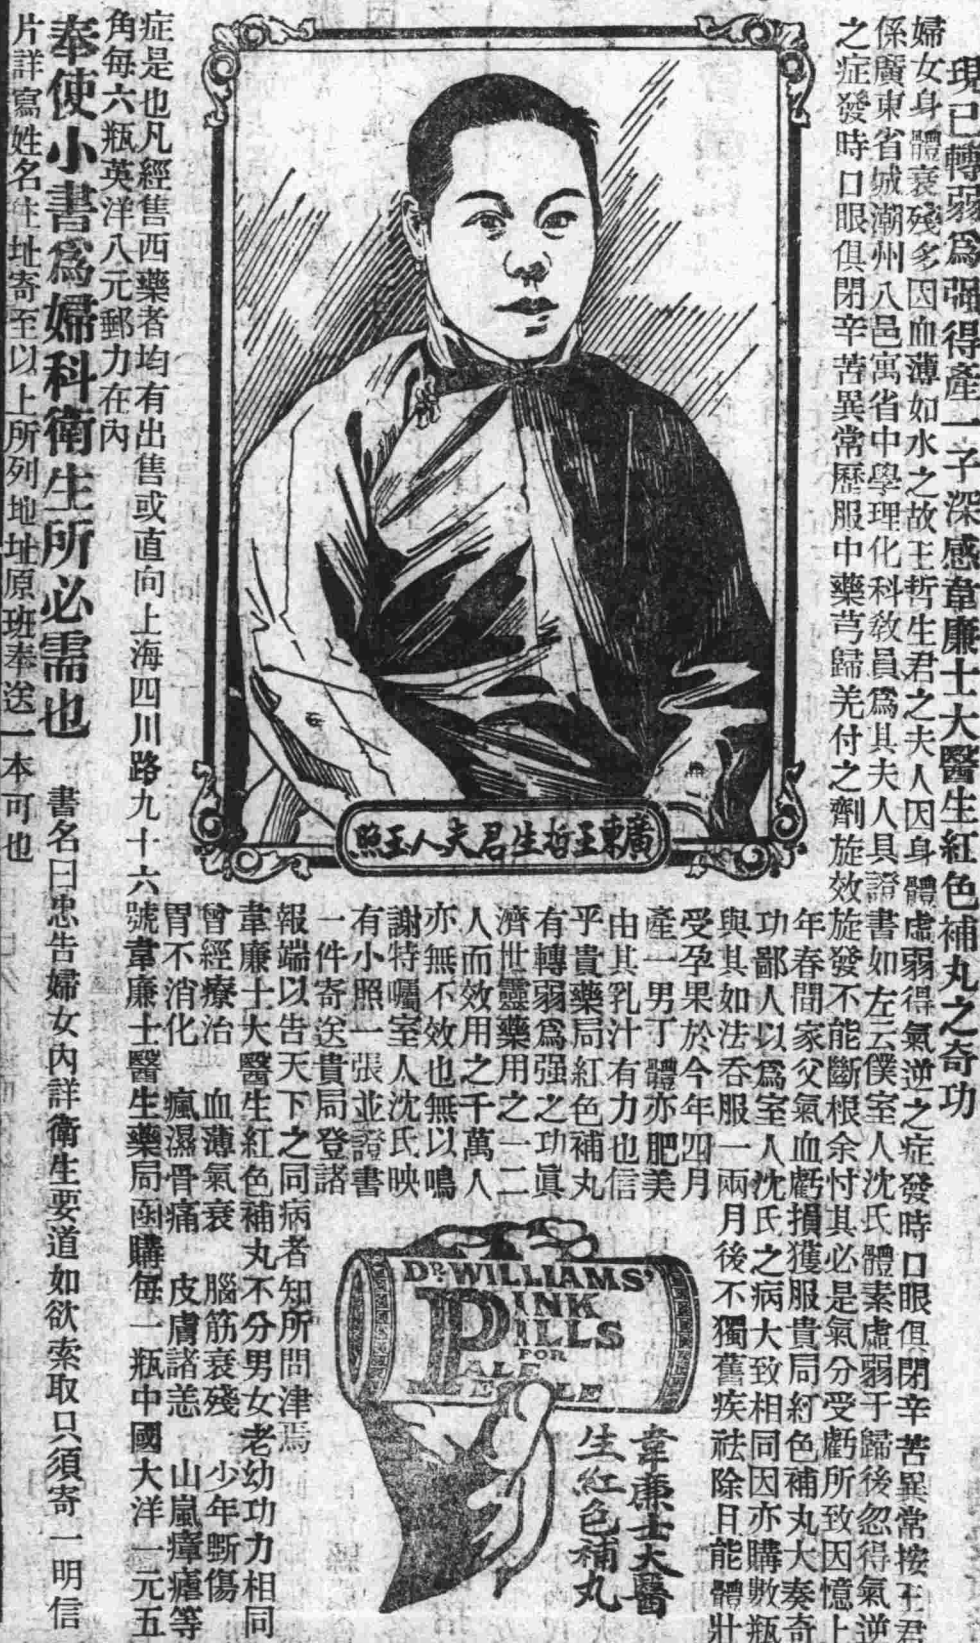 現已轉弱爲強得產一子深感韋廉士大醫生紅色補丸之奇功
婦女身體衰殘多因血薄如水之故王哲生君之夫人因身體虛弱得氣逆之症發時口眼俱閉辛苦異常按王君
係廣東省城潮州八邑寓省中學理化科教員爲其夫人具證書如左云僕室人沈氏體素虛弱于歸後忽得氣逆
之症發時口眼俱閉辛苦異常歷服中藥芎歸羌付之劑旋效旋發不能斷根余忖其必是氣分受虧所致因憶上
年春間家父氣血虧損獲服貴局紅色補丸大奏奇
功鄙人以爲室人沈氏之病大致相同因亦購數瓶
與其如法吞服一兩月後不獨舊疾祛除且能體壯
受孕果於今年四月
產一男丁體亦肥美
由其乳汁有力也信
乎貴藥局紅色補丸
有轉弱爲强之功眞
濟世靈藥用之一二
人而效用之千萬人
亦無不效也無以鳴
謝特囑室人沈氏映
有小照一張並證書
一件寄送貴局登諸
報端以告天下之同病者知所問津焉
韋廉士大醫生紅色補丸不分男女老幼功力相同
曾經療治 血薄氣衰 腦筋衰殘 少年斲傷
胃不消化 瘋濕骨痛 皮膚諸恙 山嵐瘴瘧等
症是也凡經售西藥者均有出售或直向上海四川路九十六號韋廉士醫生藥局函購每一瓶中國大洋一元五
角每六瓶英洋八元郵力在內
奉使小書爲婦科衛生所必需也 書名曰忠告婦女內詳衛生要道如欲索取只須寄一明信
片詳寫姓名住址寄至以上所列地址原班奉送一本可也
廣東王哲生君夫人玉照
DR. WILLIAMS'
PINK
PILLS
FOR
PALE
PEOPLE
韋廉士大醫
生紅色補丸